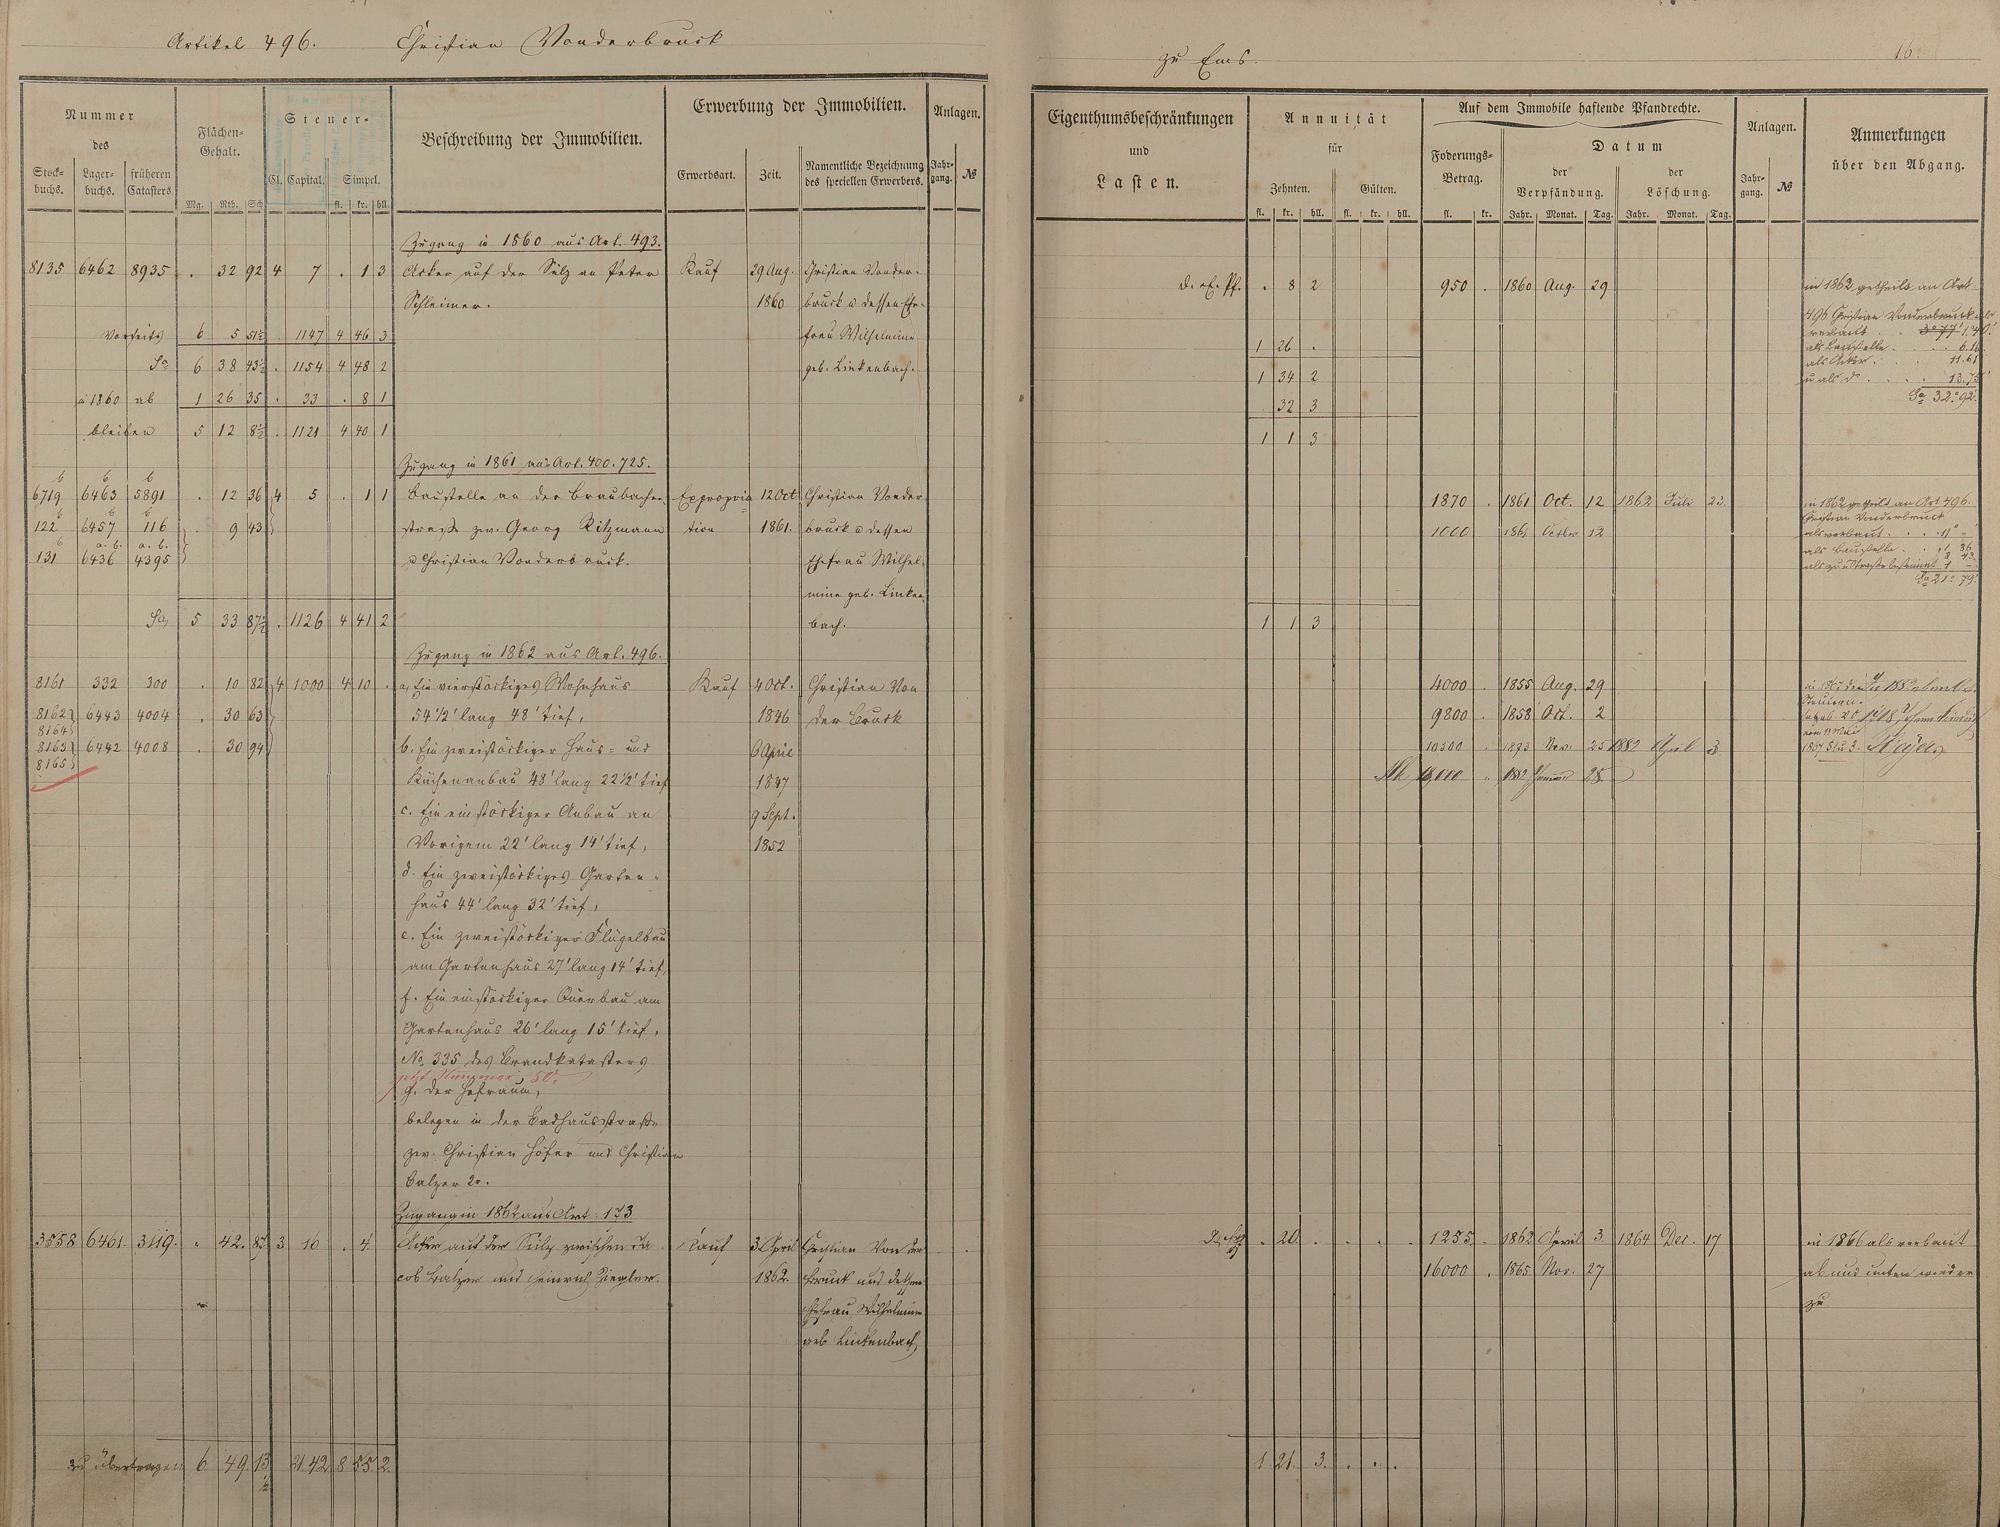 Artikel 496. Christian Vonderbruck
zu Ems. 16.
Nummer des
Stockbuchs. Lagerbuchs. früheren Catasters
Flächen-Gehalt.
Mg. Rth. Sch.
Steuer-
Cl. Capital. Simpel.
fl. kr. hll.
Beschreibung der Immobilien.
Erwerbung der Immobilien.
Erwerbsart. Zeit. Namentliche Bezeichnung des speciellen Erwerbers.
Anlagen.
Jahrgang. №
Eigenthumsbeschränkungen
und
Lasten.
Annuität
für
Zehnten. Gülten.
fl. kr. hll. fl. kr. hll.
Auf dem Immobile haftende Pfandrechte.
Foderungs-Betrag.
fl. kr.
Datum
der Verpfändung. der Löschung.
Jahr. Monat. Tag. Jahr. Monat. Tag.
Anlagen.
Jahrgang. №
Anmerkungen
über den Abgang.
Zugang in 1860 aus Art. 493.
8135 6462 8935 . 32 92 4 7 . 1 3 Acker auf der Sülz an Peter Kauf 29 Aug. Christian Vonder-
Schleimer. 1860 bruck u dessen Ehe-
Vorseits 6 5 51½ . 1147 4 46 3 frau Wilhelmine
Sa 6 38 43½ . 1154 4 48 2 geb. Linkenbach.
in 1860 ab 1 26 35 . 33 . 8 1
bleiben 5 12 8½ . 1121 4 40 1
Zugang in 1861 aus Art. 400. 725.
6719 6463 5891 . 12 36 4 5 . 1 1 Baustelle an der Braubacher Expropria 12 Oct Christian Vonder
122 6457 116 . 9 43 straße zw. Georg Ritzmann tion 1861. bruck u dessen
131 6436 4395 u Christian Vonderbruck. Ehefrau Wilhel
mine geb. Linken
Sa 5 33 87½ . 1126 4 41 2 bach.
Zugang in 1862 aus Art. 496.
8161 332 300 . 10 82 4 1000 4 10 . a, Ein vierstöckiges Wohnhaus Kauf 4 Oct. Christian Von
8162 6443 4004 . 30 63 54½' lang 48' tief, 1846 der Bruck
8164
8163 6442 4008 . 30 94 b. Ein zweistöckiger Haus- und 6 April
8165 Küchenanbau 48' lang 22½' tief 1847
c. Ein einstöckiger Anbau an 9 Sept.
Vorigem 22' lang 14' tief, 1852
d. Ein zweistöckiges Garten-
haus 44' lang 32' tief,
e. Ein zweistöckiger Flügelbau
am Gartenhaus 27' lang 14' tief,
f. Ein einstöckiger Querbau am
Gartenhaus 26' lang 15' tief,
No 335 des Brandkatasters
jetzt Nummer 50.
g. der Hofraum,
belegen in der Badhausstraße
zw. Christian Höfer und Christian
Balzer 2r.
Zugang in 1862 aus Art. 173
3558 6461. 3119. . 42. 87 3 16 . 4 Acker auf der Sülz zwischen Ja Kauf 3 April Christian Von der
cob Balzer und Heinrich Ziegler. 1862. Bruck und dessen
Ehefrau Wilhelmine
geb Linkenbach
zu übertragen 6 49. 13½ 2142 8 55 2.
. 8 2 950 . 1860 Aug. 29
in 1862 getheilt an Art.
496 Christian Vonderbruck als
verbaut
1 26 . als Baustelle 6.16
als Acker 11.61
1 34 2 u als do 13.75
32 3 Sa 32.92.
1 1 3
1870 . 1861 Oct. 12 1862 Juli 23.
in 1862 getheilt an Art 496.
Christian Vonderbruck
1000 1861 October 12
als verbaut
als Baustelle
als zur Straße bestimmt
Sa 21. 79.
1 1 3
4000 . 1855 Aug. 29
9800 . 1858 Oct. 2
10500 . 1893 Nov. 25 1882 April 3
1882 28
20. . . . . 1255. . 1862 April 3 1864 Dec. 17 in 1866 als verbaut
16000 . 1865 Nov. 27 ab und unten wieder
zu
1 21. 3. . . .